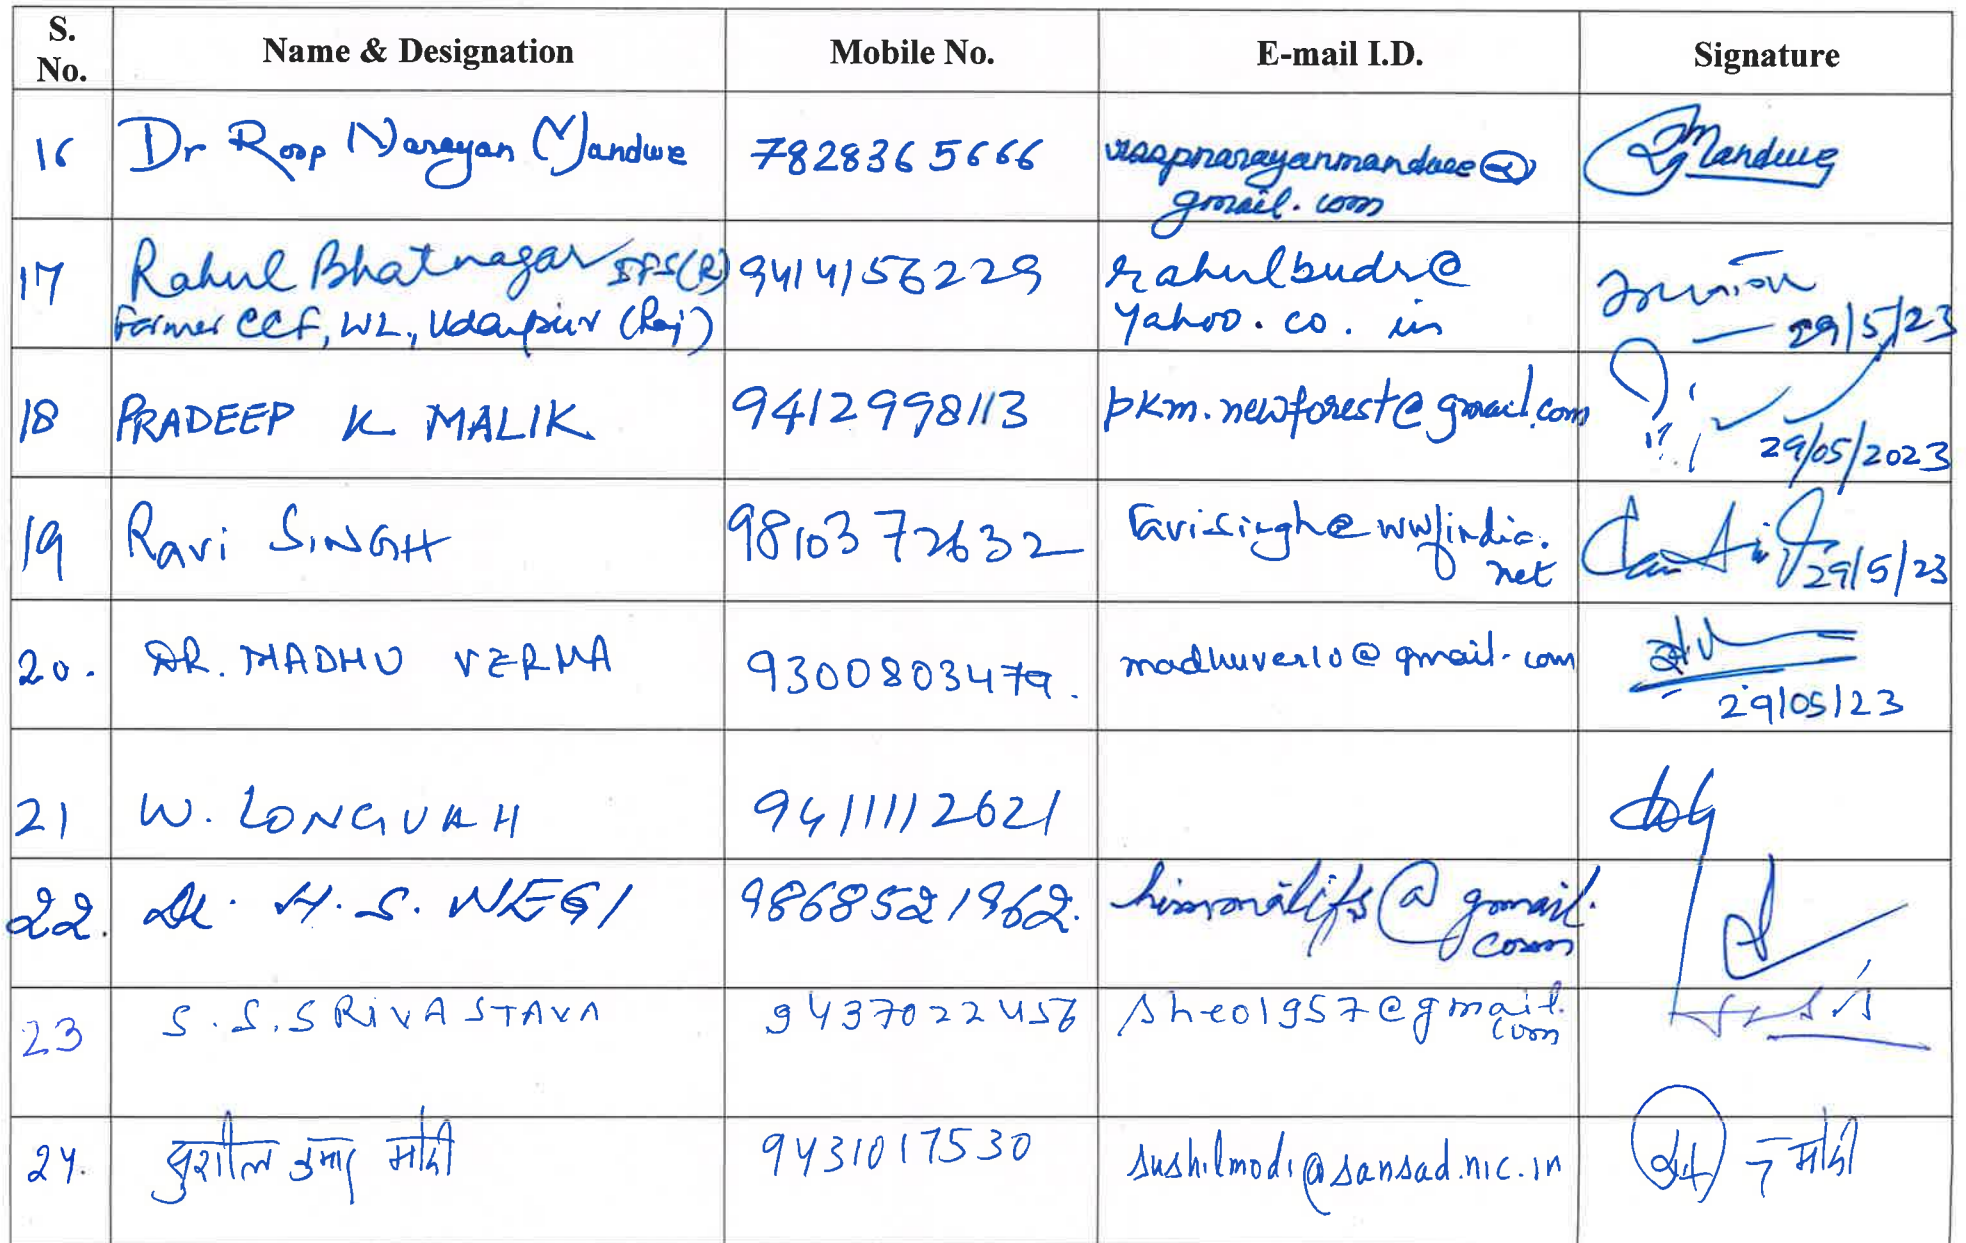 S. No. Name & Designation Mobile No. E-mail I.D. Signature
16 Dr Roop Narayan Mandwe 7828365666 roopnarayanmandwe@
gmail.com Mandwe
17 Rahul Bhatnagar IFS(R) 9414156229 rahulbudr@
Former CCF, WL, Udaipur (Raj) yahoo.co.in
29/5/23
18 PRADEEP K MALIK 9412998113 pkm.newforest@gmail.com
29/05/2023
19 Ravi SINGH 9810372632 ravisingh@wwfindia.
net 29/5/23
20. DR. MADHU VERMA 9300803479. madhuver10@gmail.com
29/05/23
21 W. LONGVAH 9411112621
22. Dr. H.S. NEGI 9868521862. himmalifs@gmail.
com
23 S.S. SRIVASTAVA 9437022456 sheo1957@gmail.
com
24. सुशील कुमार मोदी 9431017530 sushilmodi@sansad.nic.in मोदी